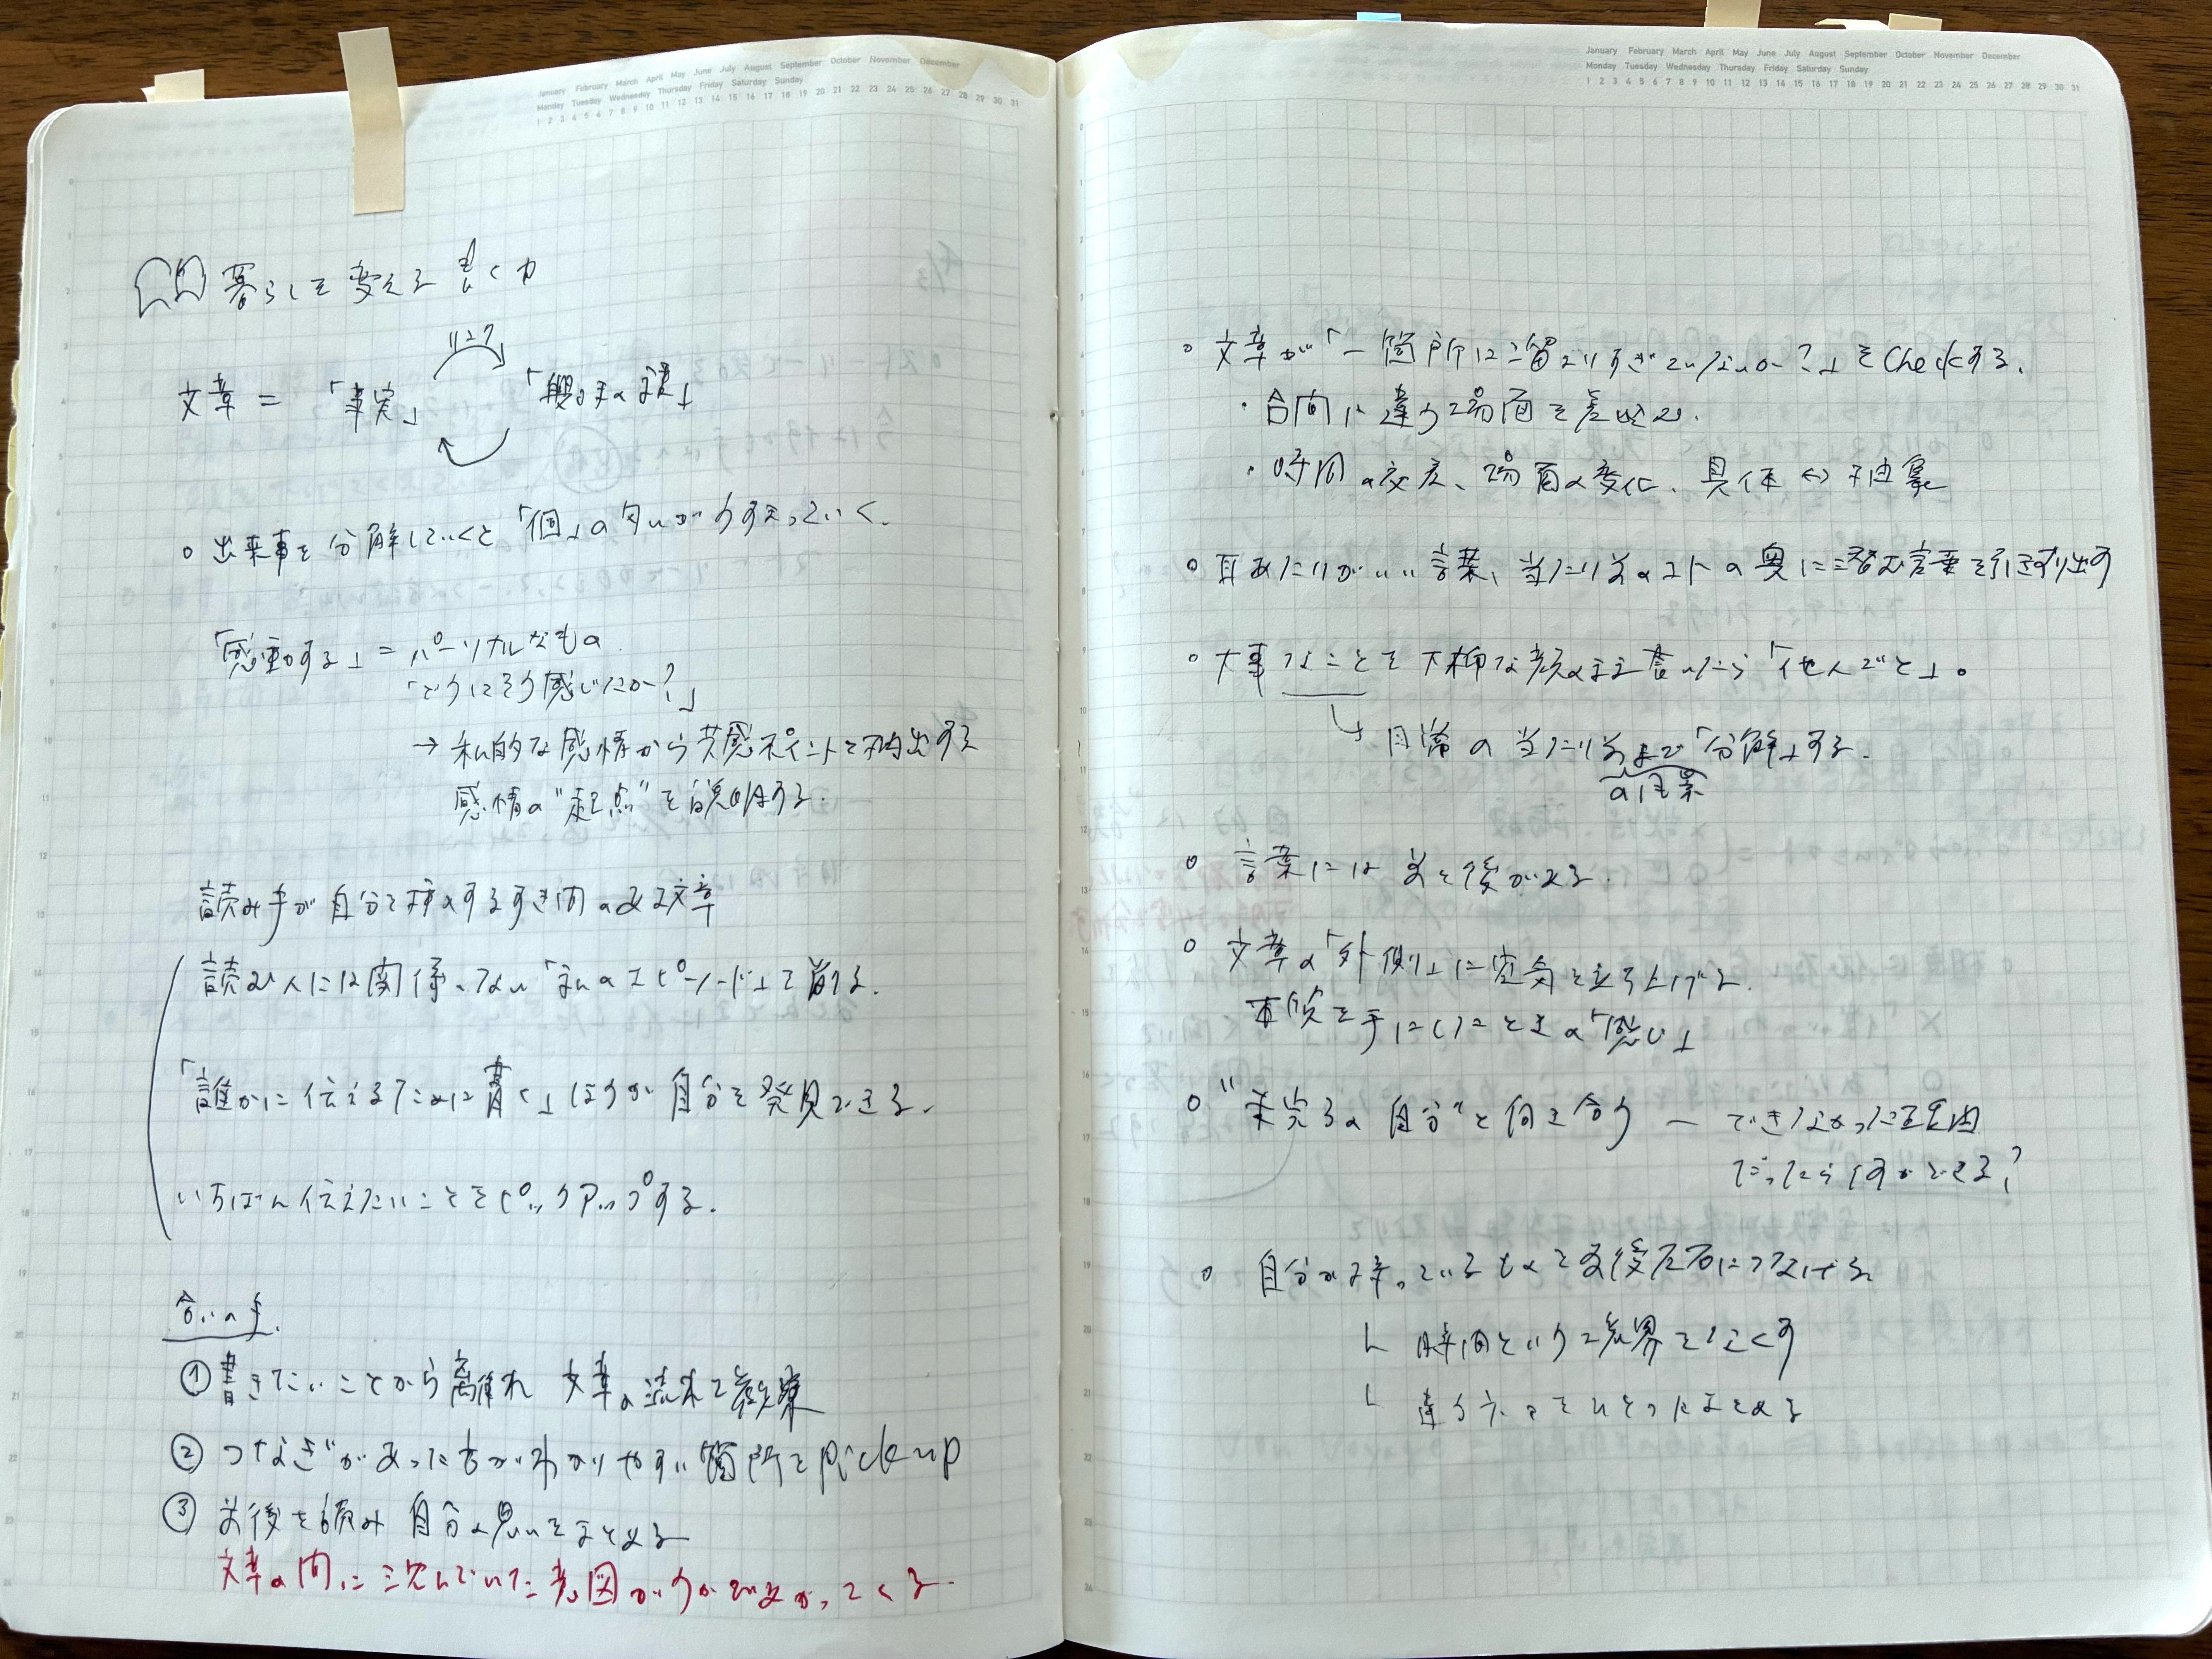 January February March April May June July August September October November December
Monday Tuesday Wednesday Thursday Friday Saturday Sunday
1 2 3 4 5 6 7 8 9 10 11 12 13 14 15 16 17 18 19 20 21 22 23 24 25 26 27 28 29 30 31
暮らしを変える書く力
文章=「事実」
「書き手の」
○出来事を分解していくと「個」の匂いがうすまっていく.
「感動する」=パーソナルなもの
「どうしてそう感じたか?」
→私的な感情から共感ポイントを抽出する
感情の"起点"を説明する.
読み手が自分を挿入するすき間のある文章
読む人には関係のない「私のエピソード」を削る.
「誰かに伝えるために書く」ほうが自分を発見できる.
いちばん伝えたいことをピックアップする.
合いの手.
①書きたいことから離れ 文章の流れを観察
②つなぎがあった方がわかりやすい箇所をpick up
③前後を読み 自分の思いをまとめる
文章の間に沈んでいた意図がうかびあがってくる.
January February March April May June July August September October November December
Monday Tuesday Wednesday Thursday Friday Saturday Sunday
1 2 3 4 5 6 7 8 9 10 11 12 13 14 15 16 17 18 19 20 21 22 23 24 25 26 27 28 29 30 31
○文章が「一箇所に留まりすぎていないか?」をCheckする.
・合間に違う場面を差し込む.
・時間の交差、場面の変化、具体⇔抽象
○耳あたりがいい言葉、当たり前のコトの奥に潜む言葉を引きずり出す
○大事なことを大事な顔のまま書いたら「他人ごと」。
↳日常の当たり前まで「分解」する.
の風景
○言葉には前と後がある.
○文章の「外側」に空気を立ち上げる.
本質を手にしたときの「感じ」
○"未完了の自分"と向き合う ― できなかった理由
だったら何ができる?
○自分が持っているものを前後左右につなげる
└ 時間という境界をなくす
└ 違うネタをひとつにまとめる